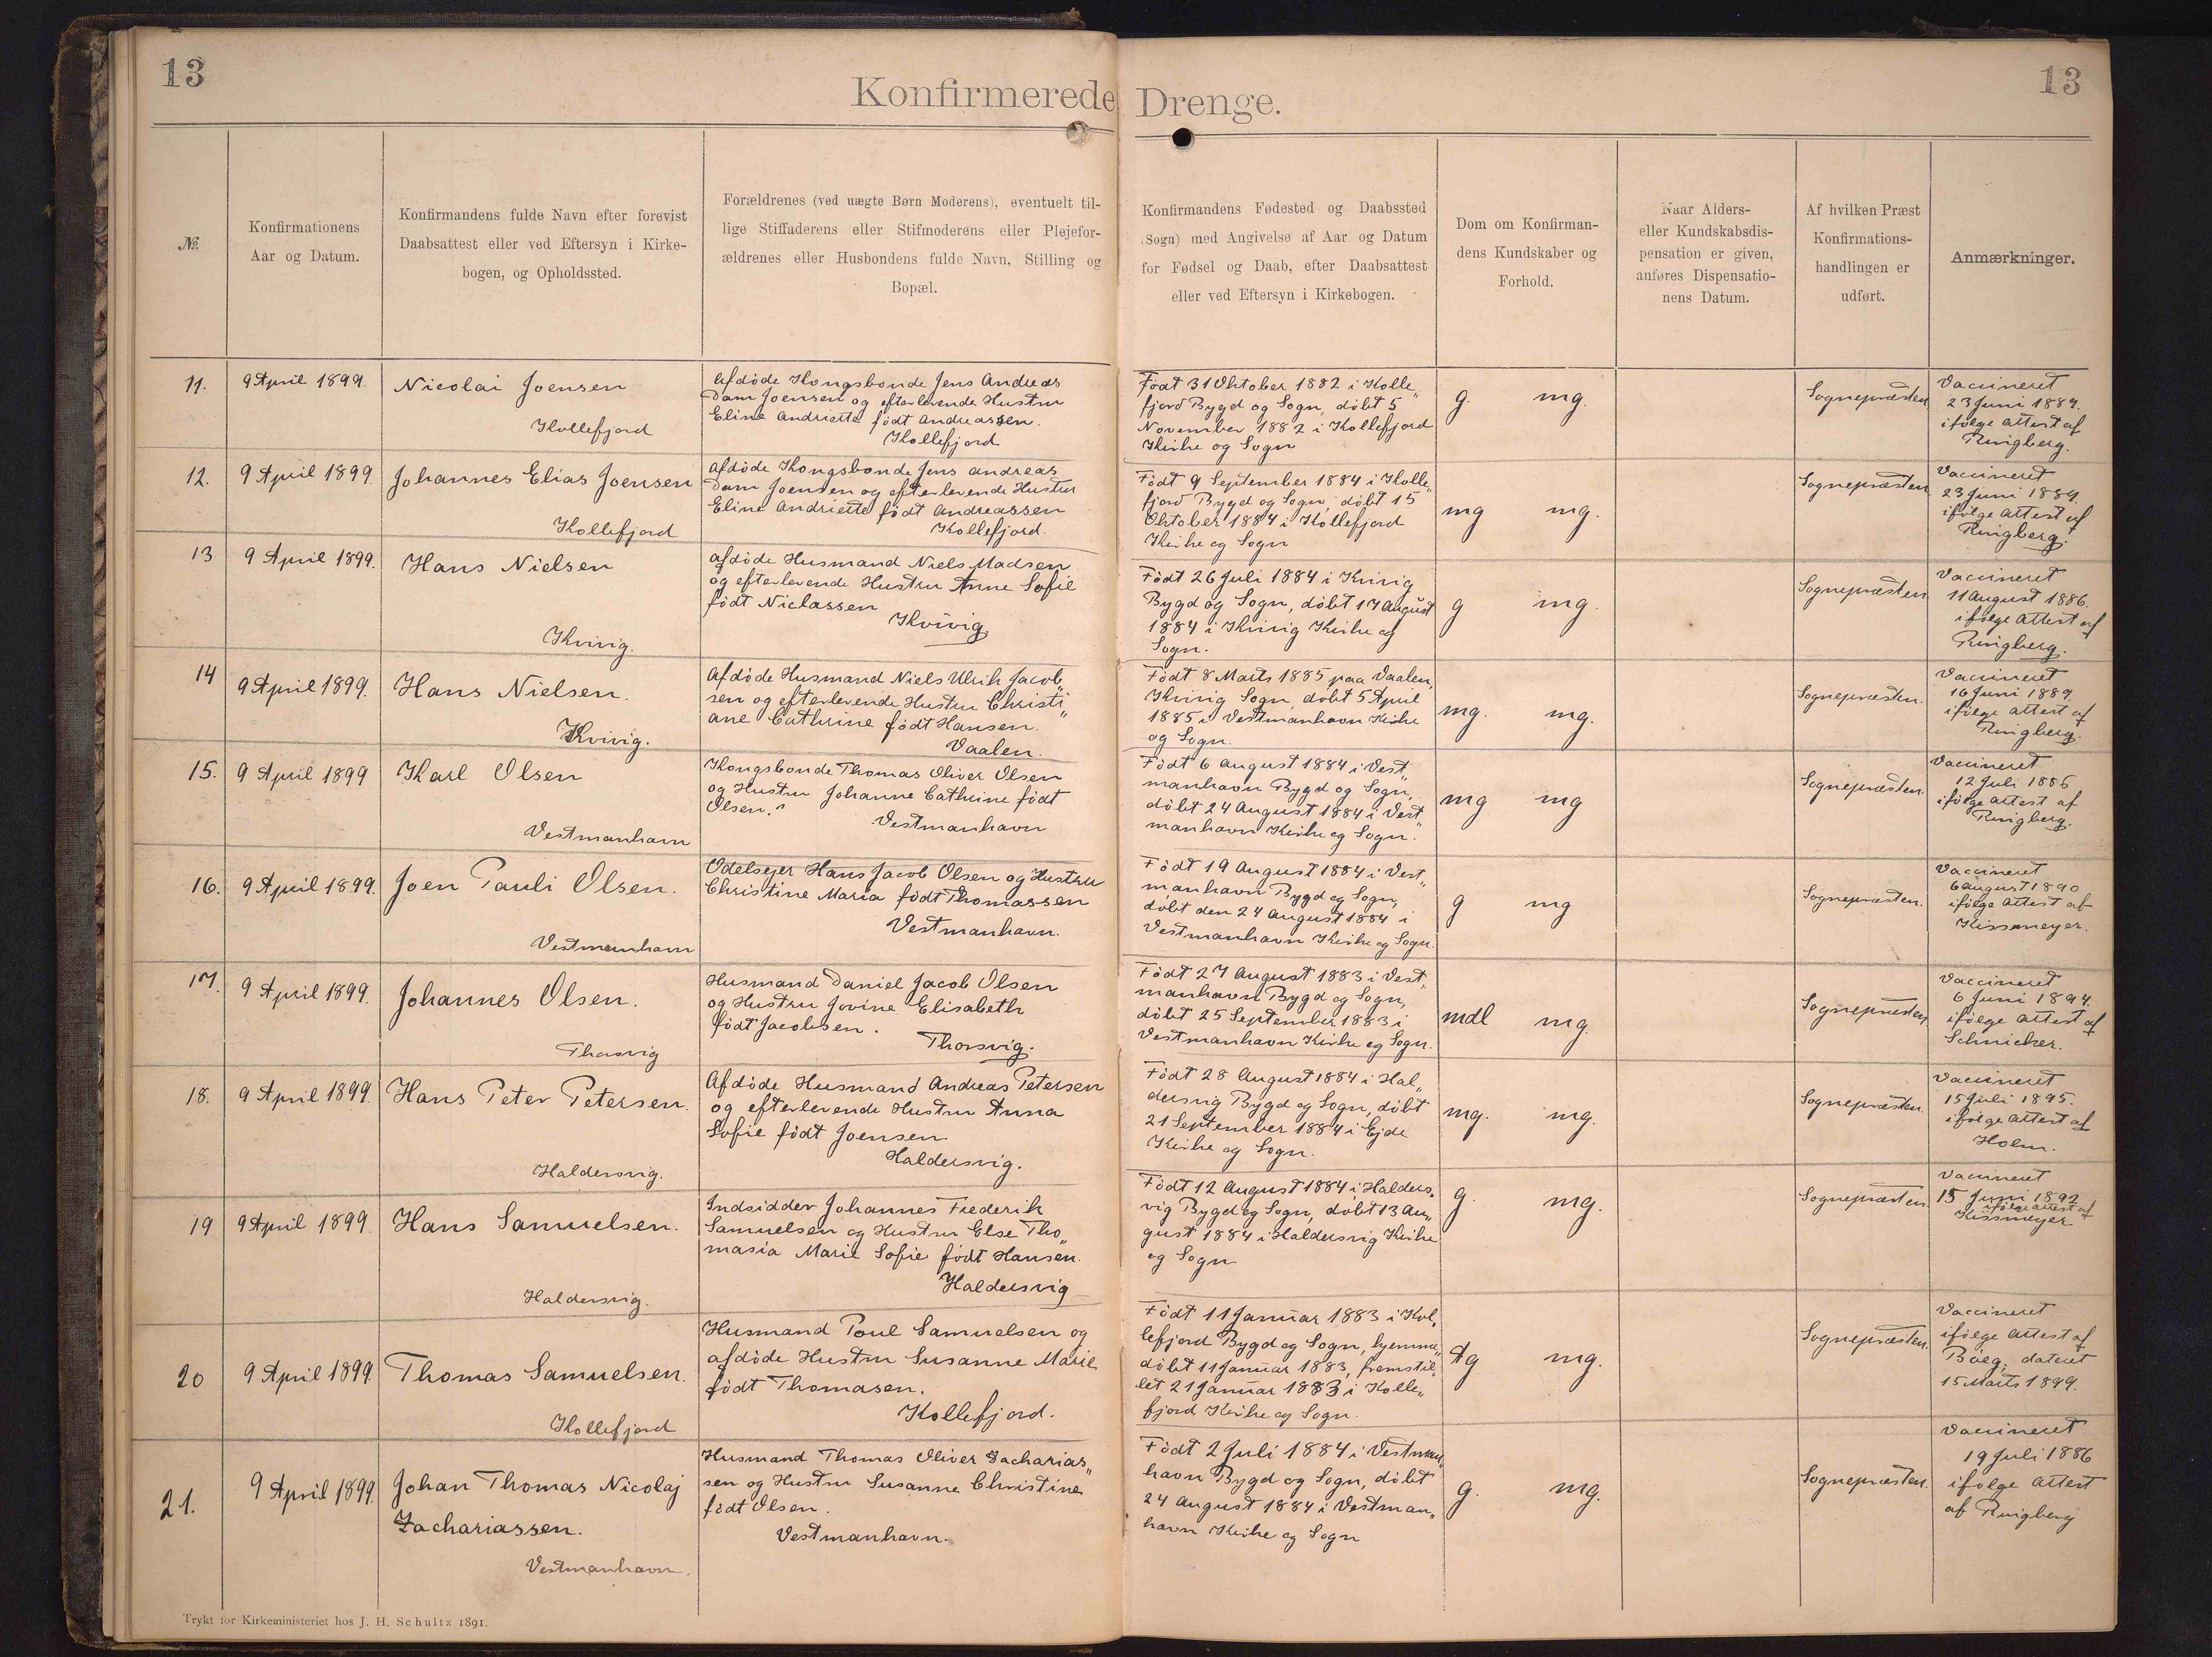 13
13
Konfirmerede Drenge.
№.
Konfirmationens
Aar og Datum.
Konfirmandens fulde Navn efter forevist
Daabsattest eller ved Eftersyn i Kirke-
bogen, og Opholdssted.
Forældrenes (ved uægte Børn Moderens), eventuelt til-
lige Stiffaderens eller Stifmoderens eller Plejefor-
ældrenes eller Husbondens fulde Navn, Stilling og
Bopæl.
Konfirmandens Fødested og Daabssted
(Sogn) med Angivelse af Aar og Datum
for Fødsel og Daab, efter Daabsattest
eller ved Eftersyn i Kirkebogen.
Dom om Konfirman-
dens Kundskaber og
Forhold.
Naar Alders-
eller Kundskabsdis-
pensation er given,
anføres Dispensatio-
nens Datum.
Af hvilken Præst
Konfirmations-
handlingen er
udført.
Anmærkninger.
11.
9 April 1899.
Nicolai Joensen
Kollefjord
Afdöde Kongsbonde Jens Andreas
Dam Joensen og efterlevende Hustru
Eline Andriette födt Andreassen.
Kollefjord
Födt 31 Oktober 1882 i Kolle„
fjord Bygd og Sogn, döbt 5
November 1882 i Kollefjord
Kirke og Sogn
g. mg.
Sognepræsten
Vaccineret
23 Juni 1889.
ifölge Attest af
Ringberg.
12.
9 April 1899.
Johannes Elias Joensen
Kollefjord
Afdöde Kongsbonde Jens Andreas
Dam Joensen og efterlevende Hustru
Eline Andriette födt Andreassen
Kollefjord.
Födt 9 September 1884 i Kolle„
fjord Bygd og Sogn, döbt 15
Oktober 1884 i Kollefjord
Kirke og Sogn
mg mg.
Sognepræsten
Vaccineret
23 Juni 1889.
ifölge Attest af
Ringberg.
13
9 April 1899.
Hans Nielsen
Kvivig.
Afdöde Husmand Niels Madsen
og efterlevende Hustru Anne Sofie
födt Niclassen
Kvivig
Födt 26 Juli 1884 i Kvivig
Bygd og Sogn, döbt 17 August
1884 i Kvivig Kirke og
Sogn.
g mg.
Sognepræsten
Vaccineret
11 August 1886.
ifölge Attest af
Ringberg.
14
9 April 1899.
Hans Nielsen.
Kvivig.
Afdöde Husmand Niels Ulrik Jacob„
sen og efterlevende Hustru Christi„
ane Cathrine födt Hansen.
Vaalen.
Födt 8 Marts 1885 paa Vaalen,
Kvivig Sogn, döbt 5 April
1885 i Vestmanhavn Kirke
og Sogn.
mg. mg.
Sognepræsten.
Vaccineret
16 Juni 1889.
ifölge Attest af
Ringberg.
15.
9 April 1899
Karl Olsen
Vestmanhavn
Kongsbonde Thomas Oliver Olsen
og Hustru Johanne Cathrine födt
Olsen.
Vestmanhavn
Födt 6 August 1884 i Vest„
manhavn Bygd og Sogn,
döbt 24 August 1884 i Vest„
manhavn Kirke og Sogn.
mg mg
Sognepræsten.
Vaccineret
12 Juli 1886
ifölge Attest af
Ringberg.
16.
9 April 1899.
Joen Pauli Olsen.
Vestmanhavn
Odelsejer Hans Jacob Olsen og Hustru
Christine Maria födt Thomassen
Vestmanhavn.
Födt 19 August 1884 i Vest„
manhavn Bygd og Sogn,
döbt den 24 August 1884 i
Vestmanhavn Kirke og Sogn.
g mg
Sognepræsten.
Vaccineret
6 August 1890
ifölge Attest af
Kissmeyer.
17.
9 April 1899.
Johannes Olsen.
Thorsvig
Husmand Daniel Jacob Olsen
og Hustru Jovine Elisabeth
födt Jacobsen.
Thorsvig.
Födt 27 August 1883 i Vest„
manhavn Bygd og Sogn,
döbt 25 September 1883 i
Vestmanhavn Kirke og Sogn.
mdl mg.
Sognepræsten
Vaccineret
6 Juni 1894.
ifölge Attest af
Schnicker.
18.
9 April 1899.
Hans Peter Petersen.
Haldersvig.
Afdöde Husmand Andreas Petersen
og efterlevende Hustru Anna
Sofie födt Joensen
Haldersvig.
Födt 28 August 1884 i Hal„
dersvig Bygd og Sogn, döbt
21 September 1884 i Ejde
Kirke og Sogn.
mg. mg.
Sognepræsten.
Vaccineret
15 Juli 1895.
ifölge Attest af
Holm.
19
9 April 1899.
Hans Samuelsen.
Haldersvig.
Indsidder Johannes Frederik
Samuelsen og Hustru Else Tho„
masia Marie Sofie födt Hansen.
Haldersvig
Födt 12 August 1884 i Halders„
vig Bygd og Sogn, döbt 13 Au„
gust 1884 i Haldersvig Kirke
og Sogn
g. mg.
Sognepræsten
Vaccineret
15 Juni 1892
ifölge Attest af
Kissmeyer
20
9 April 1899.
Thomas Samuelsen.
Kollefjord
Husmand Poul Samuelsen og
afdöde Hustru Susanne Marie
födt Thomasen.
Kollefjord.
Födt 11 Januar 1883 i Kol„
lefjord Bygd og Sogn, hjemme„
döbt 11 Januar 1883, fremstil„
let 21 Januar 1883 i Kolle„
fjord Kirke og Sogn.
tg mg.
Sognepræsten.
Vaccineret
ifölge Attest af
Böeg, dateret
15 Marts 1899.
21.
9 April 1899.
Johan Thomas Nicolaj
Zachariassen.
Vestmanhavn.
Husmand Thomas Oliver Zacharias„
sen og Hustru Susanne Christine
födt Olsen.
Vestmanhavn.
Födt 2 Juli 1884 i Vestman„
havn Bygd og Sogn, döbt
24 August 1884 i Vestman„
havn Kirke og Sogn
g. mg.
Sognepræsten.
Vaccineret
19 Juli 1886
ifölge Attest
af Ringberg
Trykt for Kirkeministeriet hos J. H. Schultz 1891.